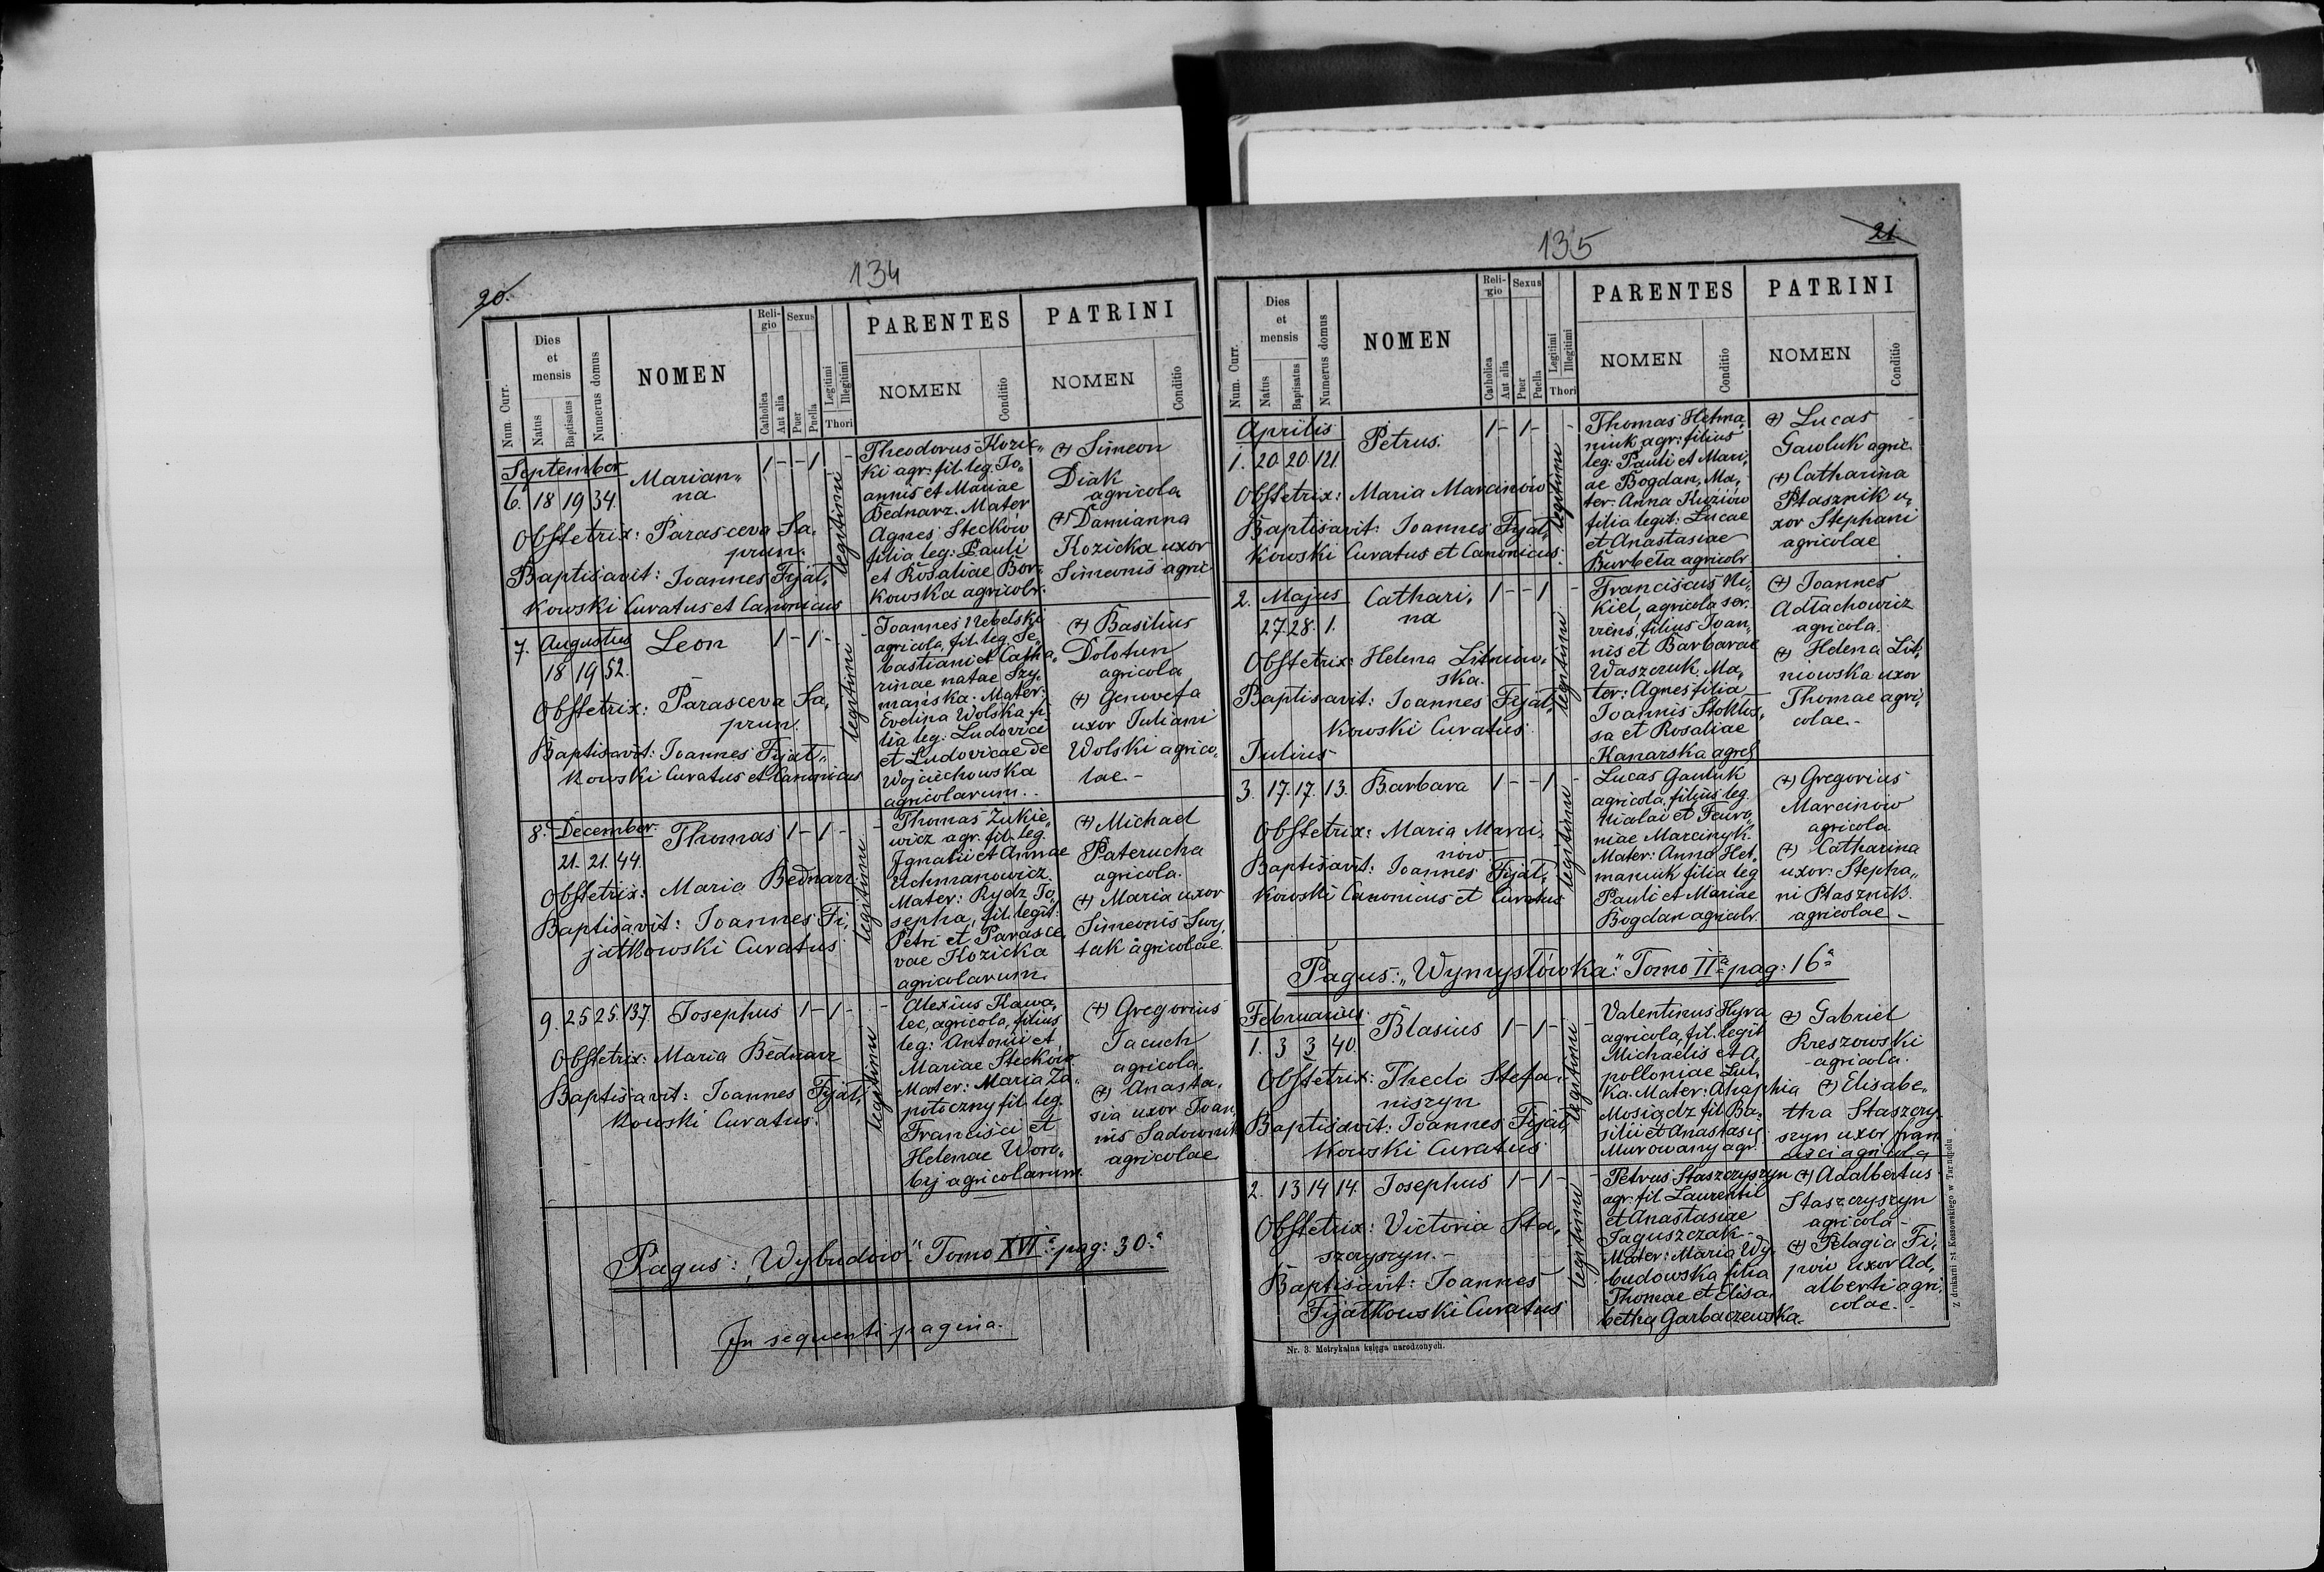 20.
134
Num. Curr.
Dies et mensis
Natus
Baptisatus
Numerus domus
NOMEN
Religio
Catholica
Aut alia
Sexus
Puer
Puella
Legitimi
Illegitimi
Thori
PARENTES
NOMEN
Conditio
PATRINI
NOMEN
Conditio
September
6. 18 19 34.
Marian„
na
1 - - 1 -
Obstetrix: Parasceva Sa„
prun.
Baptisavit: Joannes Fijał„
kowski Curatus et Canonicus
legitimi
Theodorus Kozic„
ki agr: fil. leg. Jo„
annis et Mariae
Bednarz. Mater
Agnes Stecków
filia leg: Pauli
et Rosaliae Bor„
kowska agricolr.
(+) Simeon
Diak
agricola
(+) Damianna
Kozicka uxor
Simeonis agric.
7. Augustus
18 19 52.
Leon
1 - 1 - -
Obstetrix: Parasceva Sa„
prun.
Baptisavit: Joannes Fijał„
kowski Curatus et Canonicus
legitimi
Joannes Nebelski
agricola, fil. leg. Se„
bastiani et Catha„
rinae natae Szy„
mańska. Mater:
Evelina Wolska fi
lia leg: Ludovici
et Ludovicae de
Wojciechowska
agricolarum..
(+) Basilius
Dolotun
agricola
(+) Genovefa
uxor Juliani
Wolski agrico„
lae -
8. December.
21. 21. 44.
Thomas
1 - 1 - -
Obstetrix: Maria Bednarz.
Baptisavit: Joannes Fi„
jałkowski Curatus
legitimi
Thomas Żukie„
wicz agr. fil. leg.
Ignatii et Annae
Uchmanowicz.
Mater: Rydz Jo„
sepha, fil. legit:
Petri et Parasce„
vae Kozicka
agricolarum.
(+) Michael
Paterucha
agricola.
(+) Maria uxor
Simeonis Swy„
tak agricolae.
9. 25 25. 137.
Josephus
1 - 1 - -
Obstetrix: Maria Bednarz
Baptisavit: Joannes Fijał„
kowski Curatus.
legitimi
Alexius Kawa„
lec, agricola, filius
leg: Antonii et
Mariae Stecków
Mater: Maria Za„
potoczny fil. leg.
Francisci et
Helenae Woro„
bij agricolarum.
(+) Gregorius
Jacuch
agricola.
(+) Anasta„
sia uxor Joan„
nis Sadownik
agricolae
Pagus: „Wybudów". Tomo XVIº pag: 30.ª
In sequenti pagina.
135
21.
Num. Curr.
Dies et mensis
Natus
Baptisatus
Numerus domus
NOMEN
Religio
Catholica
Aut alia
Sexus
Puer
Puella
Legitimi
Illegitimi
Thori
PARENTES
NOMEN
Conditio
PATRINI
NOMEN
Conditio
Aprilis
1. 20. 20. 121.
Petrus.
1 - 1 - -
Obstetrix: Maria Marcinów
Baptisavit: Joannes Fijał„
kowski Curatus et Canonicus.
legitimi
Thomas Hetma„
niuk agr: filius
leg: Pauli et Mari„
ae Bogdan, Ma„
ter: Anna Kuziów
filia legit: Lucae
et Anastasiae
Burbeta agricolr
(+) Lucas
Gawluk agric.
(+) Catharina
Ptasznik u„
xor Stephani
agricolae
2. Majus
27. 28. 1.
Cathari„
na
1 - - 1 -
Obstetrix: Helena Litniow„
ska.
Baptisavit: Joannes Fijał„
kowski Curatus
legitimi
Franciscus Ni„
kiel, agricola ser„
viens, filius Joan„
nis et Barbarae
Waszczuk. Ma„
ter: Agnes filia
Joannis Stokłos„
sa et Rosaliae
Kanarska agrcl
(+) Joannes
Adłachowicz
agricola.
(+) Helena Lit„
niowska uxor
Thomae agri„
colae. -
Julius
3. 17. 17. 13.
Barbara
1 - - 1 -
Obstetrix: Maria Marci„
nów
Baptisavit: Joannes Fijał„
kowski Canonicus et Curatus
legitimi
Lucas Gawluk
agricola, filius leg.
Nicolai et Feuro„
niae Marcinyk.
Mater: Anna Het„
maniuk filia leg
Pauli et Mariae
Bogdan agricolr.
(+) Gregorius
Marcinów
agricola.
(+) Catharina
uxor: Stepha„
ni Ptasznik.
agricolae -
Pagus: „Wymysłówka". Tomo IIª pag: 16ª
Februarius.
1. 3 3 40.
Blasius
1 - 1 - -
Obstetrix: Thedo Stefa„
niszyn
Baptisavit: Joannes Fijał„
kowski Curatus
legitimi
Valentinus Hyra
agricola, fil. legit
Michaelis et A„
polloniae Lut„
ka. Mater: Ahaphia
Mosiądz fil. Ba„
silii et Anastasij
Murowany agr.
(+) Gabriel
Kreszowski
- agricola.
(+) Elisabe„
tha Staszczy„
szyn uxor fran„
cisci agricolae
2. 13 14 14.
Josephus
1 - 1 - -
Obstetrix: Victoria Sta„
szczyszyn. -
Baptisavit: Joannes
Fijałkowski Curatus
legitimi
Petrus Staszczyszyn
agr. fil. Laurentii
et Anastasiae
Jaguszczak -
Mater: Maria Wy„
budowska filia
Thomae et Elisa„
betha Garbaczewska.
(+) Adalbertus
Staszczyszyn
agricola -
(+) Pelagia Fi„
jów uxor Ad„
alberti agri„
colae. -
Nr. 3. Metrykalna księga narodzonych.
Z drukarni St. Kossowskiego w Tarnopolu.